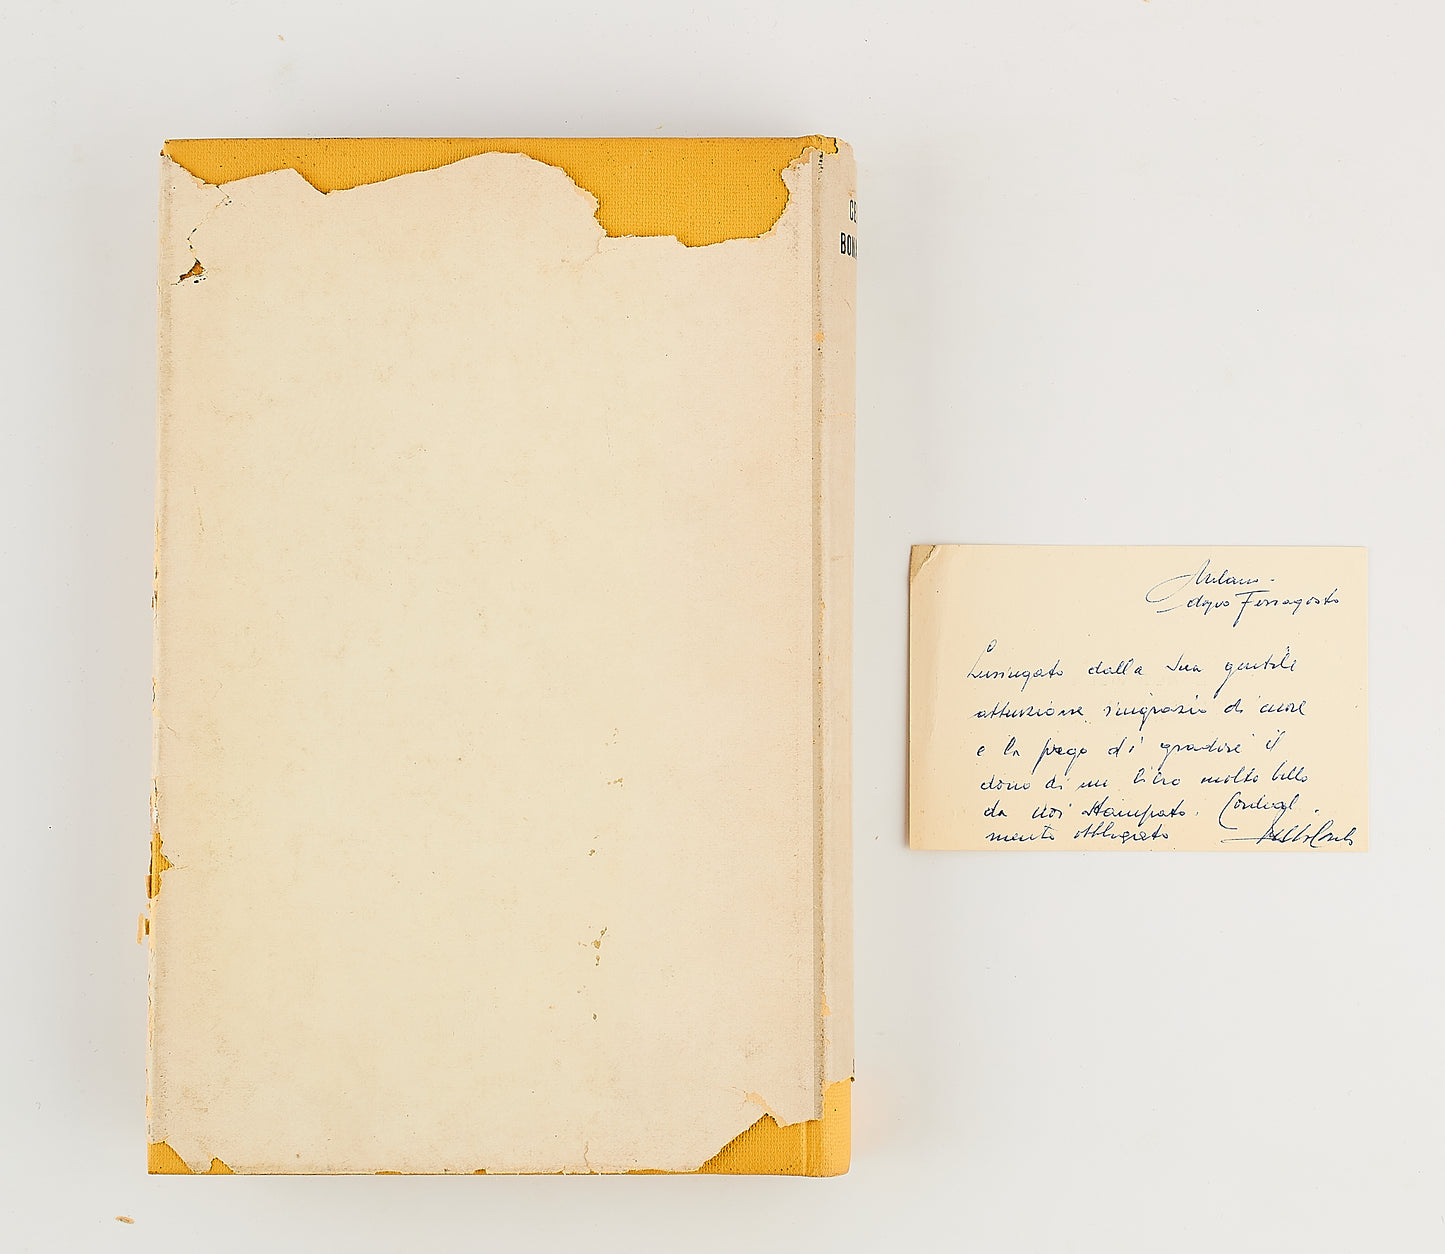 CE
BON
Milano -
dopo Ferragosto
Lusingato dalla Sua gentile
attenzione ringrazio di cuore
e La prego di gradire il
dono di un libro molto bello
da noi stampato. Cordial
mente obbligato